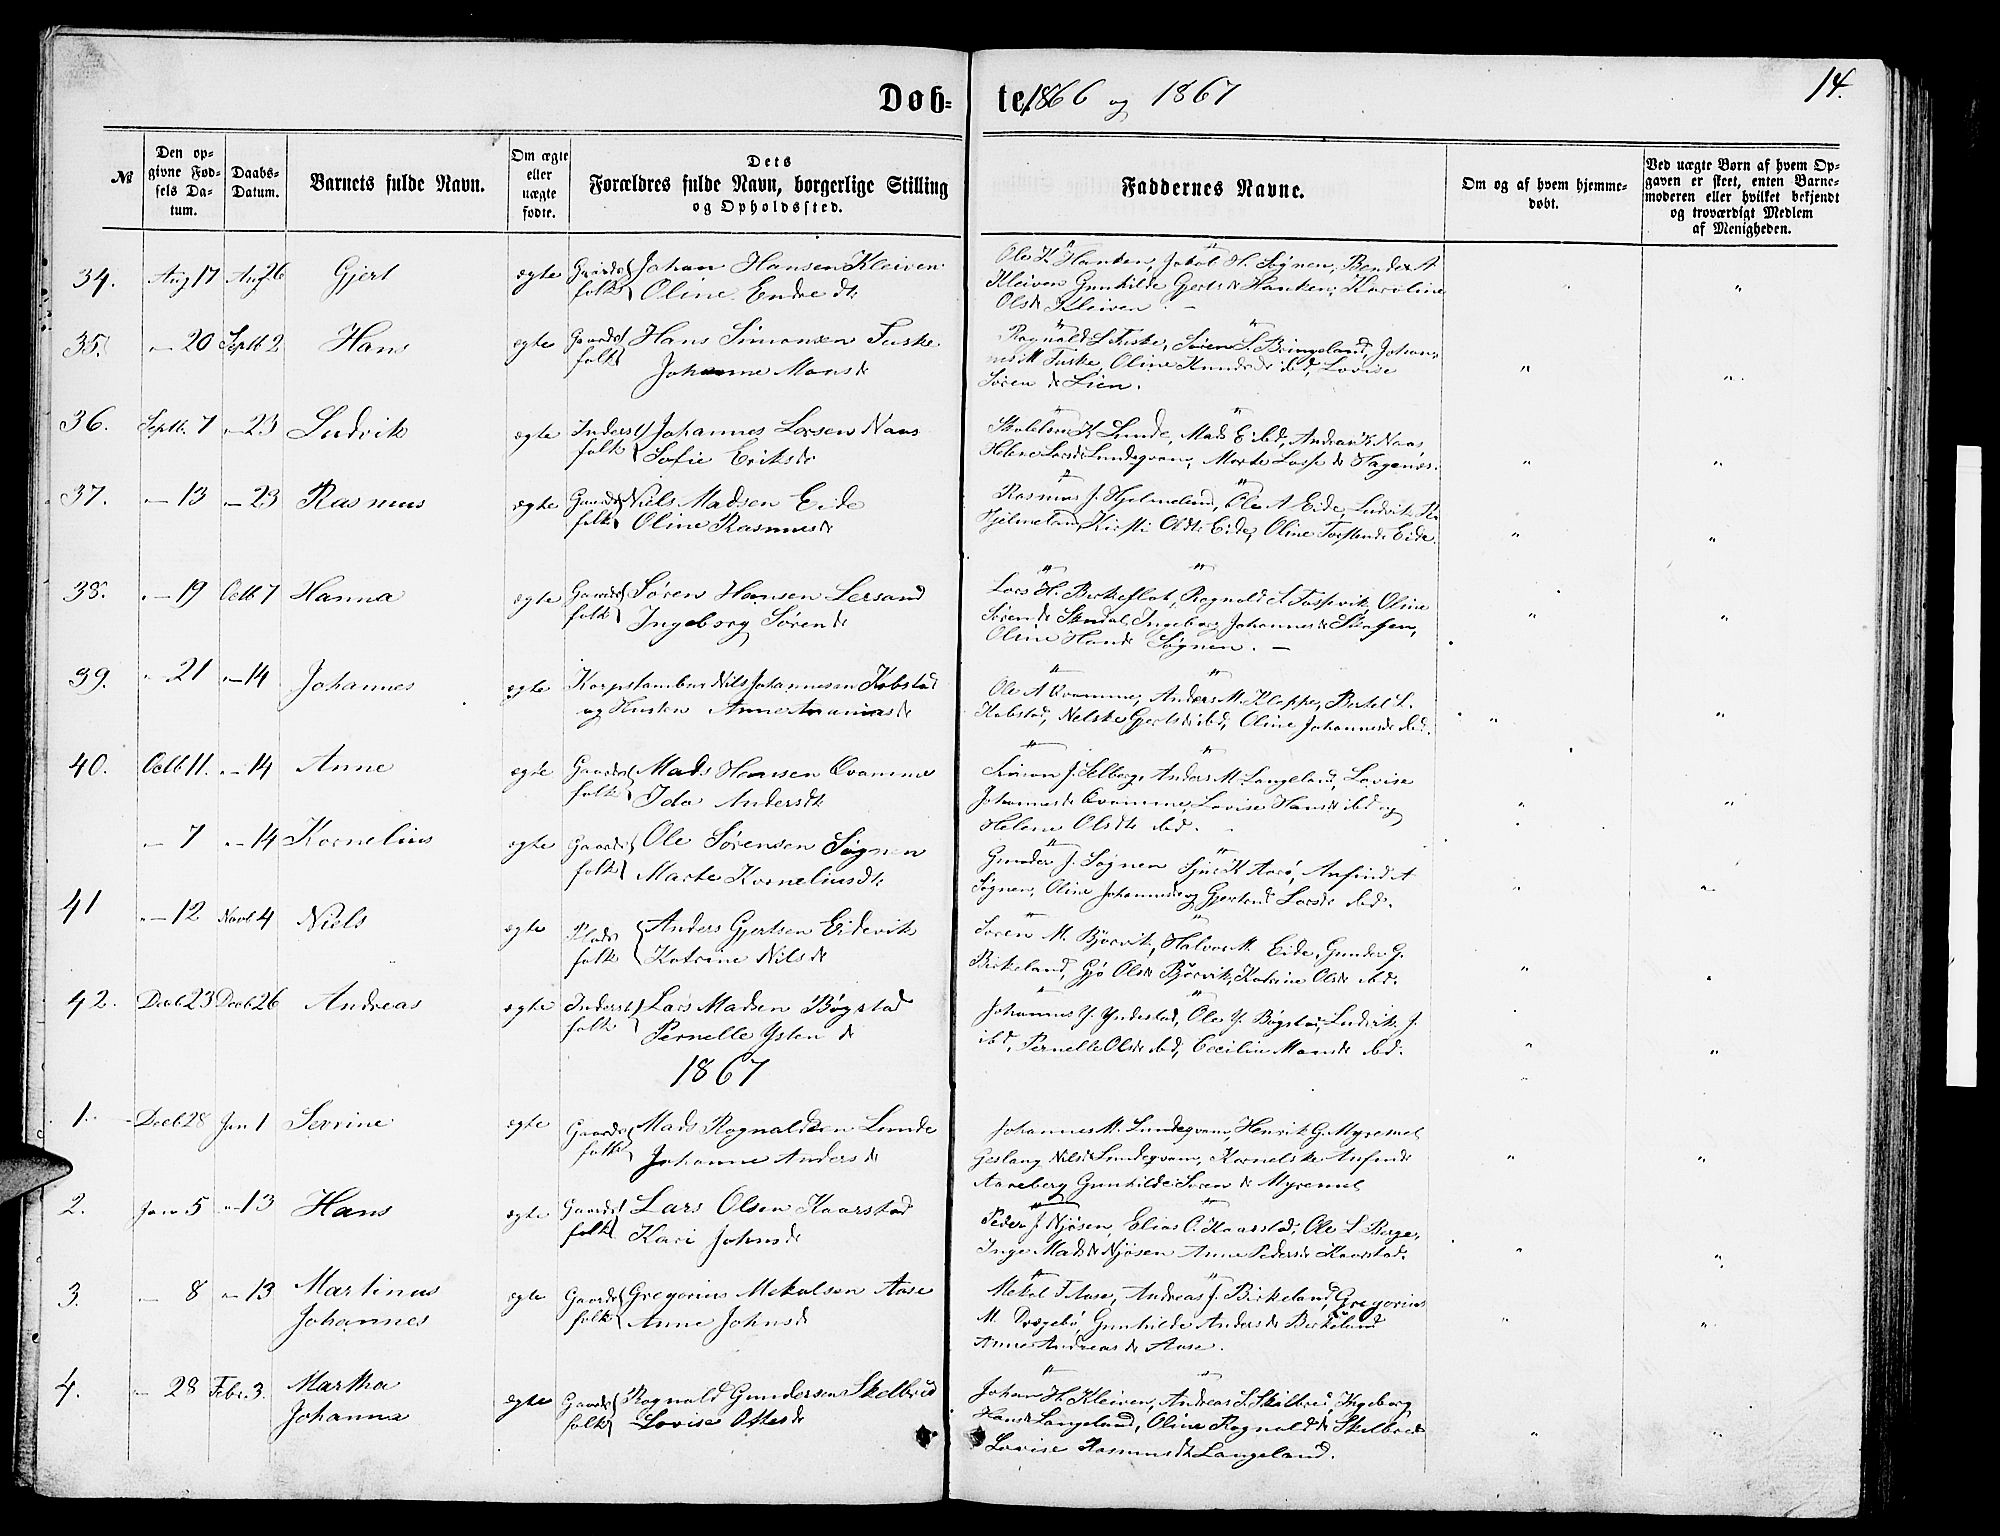 Døb- te. 1866 og 1867
14.
№
Den opgivne Fødsels Datum.
Daabs-Datum.
Barnets fulde Navn.
Om ægte eller uægte fødte.
Dets Forældres fulde Navn, borgerlige Stilling og Opholdssted.
Faddernes Navne.
Om og af hvem hjemmedøbt.
Ved uægte Børn af hvem Opgaven er skeet, enten Barnemoderen eller hvilket bekjendt og troværdigt Medlem af Menigheden.
34. Aug 17 Aug 26 Gjert ægte Gaardsfolk Johan Hansen Kleiven
Oline Endredt.
Ole K Hanken, Jakob H. Søgnen, Bendik A
Kleiven Gunhilde Gjertsd Hanken, Karoline
Olsd Kleiven. —
35. " 20 Septb 2 Hans ægte Gaardsfolk Hans Simonsen Tuske
Johanne Monsd
Rognald S Tuske, Søren S. Bringeland, Johan-
nes M Tuske, Oline Knudsd ibd, Lovise
Sørend Lien.
36. Septb. 7 " 23 Ludvik ægte Inderstfolk Johannes Larsen Naas
Sofie Eriksd
K Lunde, Mads E ibd, Andreas K Naas
Helene Larsd Lundeqvam, Marte Larsd Hagenæs.
37. " 13 " 23 Rasmus ægte Gaardsfolk Niels Madsen Eide
Oline Rasmusd
Rasmus J. Hjelmeland, Ole A Eide, Ludvik
Hjelmeland, Kirsti Olsdt Eide, Oline Torstensd Eide.
38. " 19 Octb 7 Hanna ægte Gaardsfolk Søren Hansen Lersand
Ingeborg Sørend
Lars H. Birkeflot, Rognald S. Oline
Sørend Skudal, Ingeborg Johannesd
Oline Hansd Søgnen. —
39. " 21 " 14 Johannes ægte Korpstambur Nils Johannesen Kobstad
og Hustru Anne Ananiasd
Ole A Kvamme, Anders M. Kleppe, Bertel L.
Kobstad, Nelske Gjertsd ibd, Oline Johannesd ibd.
40. Octb 11. " 14 Anne ægte Gaardsfolk Mads Hansen Qvamme
Ida Andersdt
Simon J. Selberg, Anders M. Langeland, Lovise
Johannesd Qvamme, Lovise Hansd ibd og
Helene Olsdt ibd.
" 7 " 14 Kornelius ægte Gaardsfolk Ole Sørensen Søgnen
Marte Korneliusdt.
Gunder J. Søgnen Sjur K Aarø, Anfind A
Søgnen, Oline Johannesd og Gjertrud Larsd ibd.
41 " 12 Novb 4 Niels ægte Pladsfolk Anders Gjertsen Eidevik
Katrine Nilsd
Søren M. Bjørvik, Halvor M. Eide, Gunder G.
Birkeland, Gjø Olsd Bjørvik, Katrine Olsd ibd.
42. Decb 23 Decb 26 Andreas ægte Inderstfolk Lars Madsen Bøgstad
Pernelle Ystend
Johannes Y. Yndestad, Ole Y. Bøgstad, Ludvik J.
ibd, Pernelle Olsd ibd, Cecilie Monsd ibd.
1867
1. Decb 28 Jan 1 Serine ægte Gaardsfolk Mads Rognaldsen Lunde
Johanne Andersd
Johannes M. Lundeqvam, Henrik G. Myremel
Geslaug Nilsd Lundeqvam, Kornelske Anfinds
Aaseberg Gunhilde Sørend Myremel
2. Janu 5 " 13 Hans ægte Gaardsfolk Lars Olsen Kaarstad
Kari Johnsd
Peder J. Njøsen, Elias O. Kaarstad, Ole L. Berge,
Inge Madsd Njøsen Anne Pedersd Kaarstad.
3. " 8 " 13 Martinus
Johannes ægte Gaardsfolk Gregorius Mekalsen Aase
Anne Johnsd
Mekal T Aase, Andreas J. Birkeland, Gregorius
M. Dregebø, Gunhilde Andersd Birkeland
Anne Andreasd Aase.
4. " 28 Febr. 3. Martha
Johanna ægte Gaardsfolk Rognald Gundersen Skelbred
Lovise Ottesd
Johan H. Kleiven, Andreas S. Skilbred, Ingeborg
Hansd Langeland, Oline Rognaldsd Skelbred
Lovise Rasmusdt Langeland.